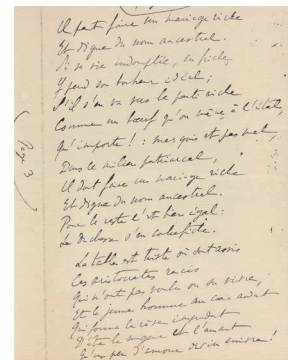 Il faut faire un mariage riche
Et digne du nom ancestral.
Si sa vie indomptée, en friche,
Y perd son bonheur idéal;
S'il s'en va vers le parti riche
Comme un bœuf qu'on mène à l'étal,
Qu'importe! : marquis est pas mal,
Dans le milieu patriarcal,
Il doit faire un mariage riche
Et digne du nom ancestral.
Pour le reste c'est bien égal:
La duchesse s'en contrefiche.
La table est triste où sont assis
Ces aristocrates racis
Qui n'ont pas voulu ou su vivre,
Et le jeune homme au cœur ardent
Qui forma le rêve imprudent
D'être le mage et l'amant
Qu'un peu d'amour divin enivre!
Page 3